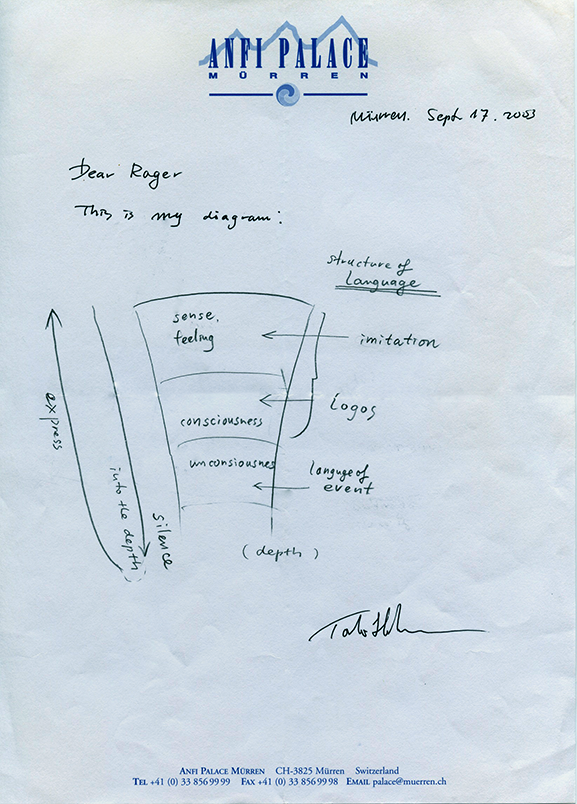 ANFI PALACE
MÜRREN
Mürren. Sept 17. 2003
Dear Roger
This is my diagram:
structure of
language
sense.
feeling
imitation
Logos
consciousness
unconsiousnes
languge of
event
express
into the depth
silence
( depth )
ANFI PALACE MÜRREN CH-3825 Mürren Switzerland
TEL +41 (0) 33 856 99 99 FAX +41 (0) 33 856 99 98 EMAIL palace@muerren.ch